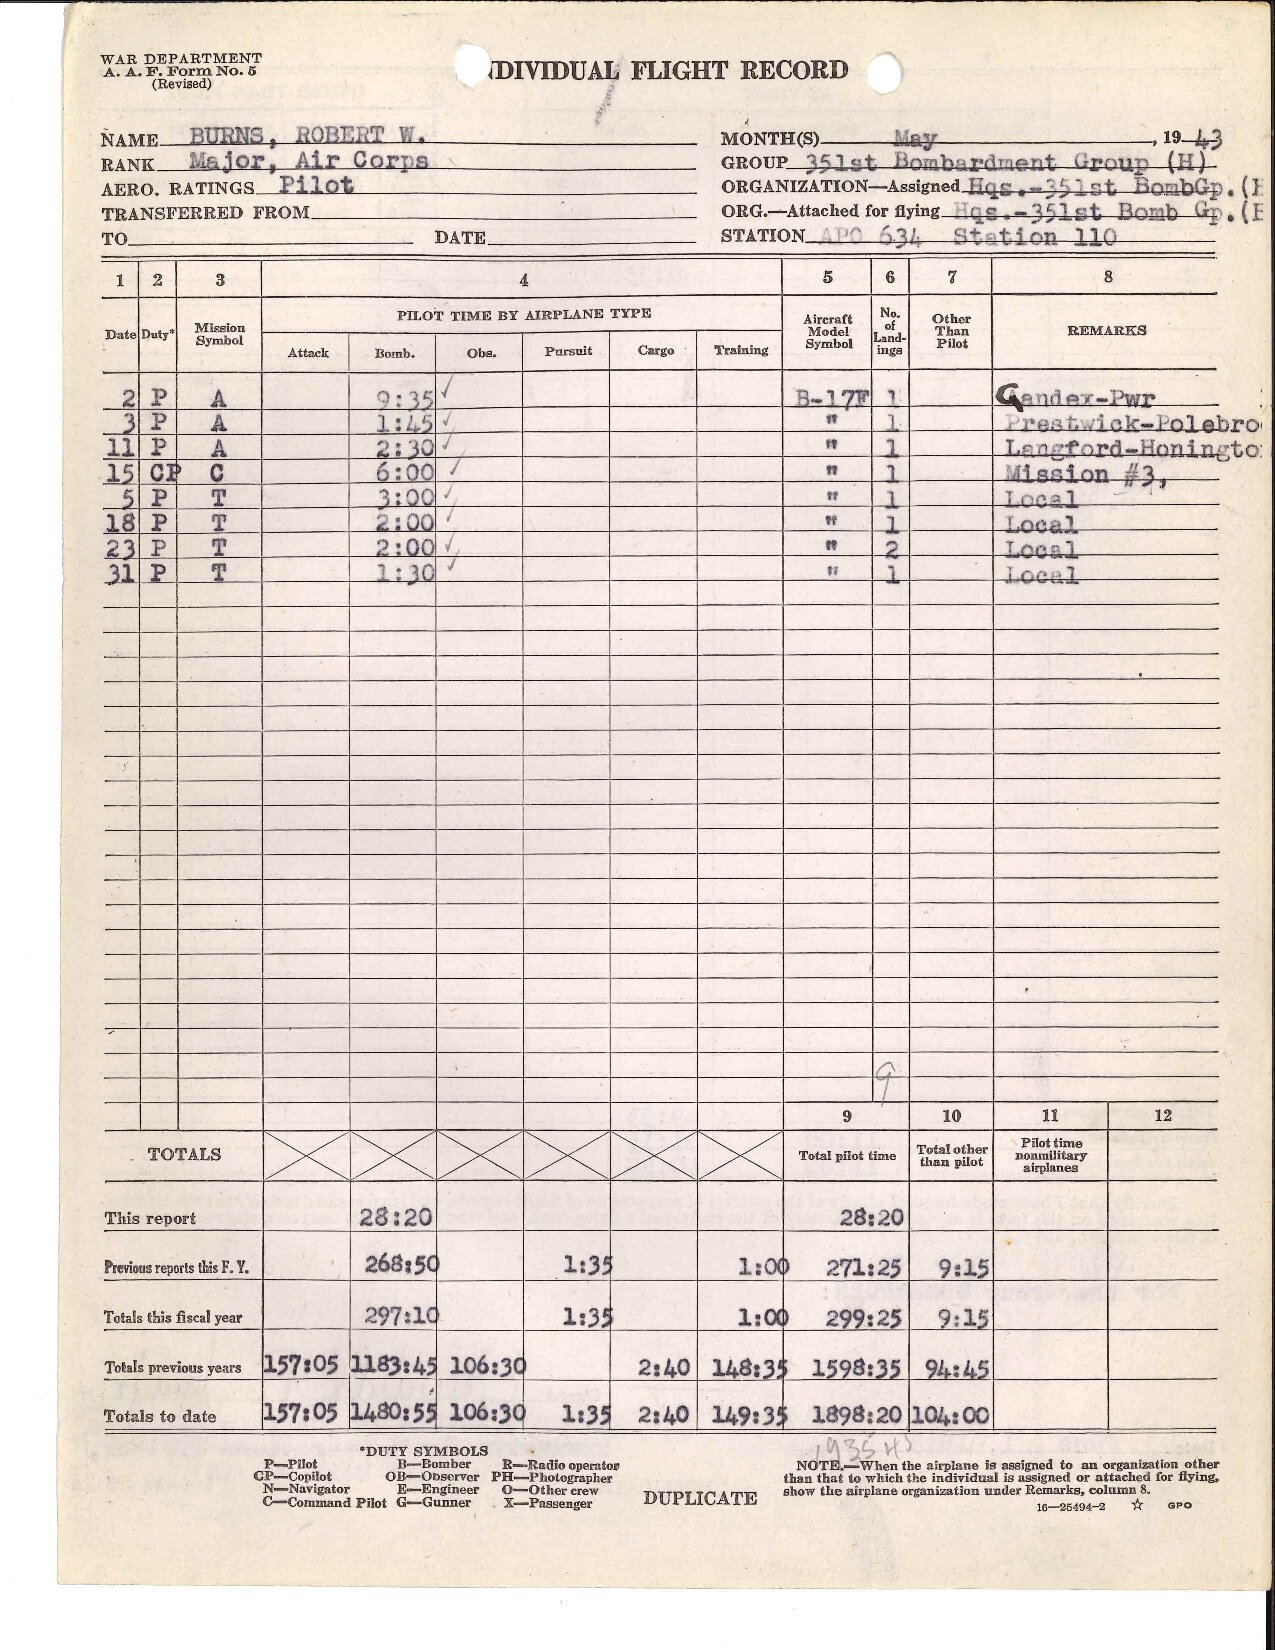 WAR DEPARTMENT
A. A. F. Form No. 5
(Revised)
NDIVIDUAL FLIGHT RECORD
NAME BURNS, ROBERT W.
RANK Major, Air Corps
AERO. RATINGS Pilot
TRANSFERRED FROM
TO DATE
MONTH(S) May, 1943
GROUP 351st Bombardment Group (H)
ORGANIZATION—Assigned Hqs.-351st BombGp.(H
ORG.—Attached for flying Hqs.-351st Bomb Gp.(H
STATION APO 634 Station 110
1 2 3 4 5 6 7 8
Date Duty* Mission Symbol PILOT TIME BY AIRPLANE TYPE Aircraft Model Symbol No. of Land-ings Other Than Pilot REMARKS
Attack Bomb. Obs. Pursuit Cargo Training
2 P A 9:35 ✓ B-17F 1 Gander-Pwr
3 P A 1:45 ✓ " 1 Prestwick-Polebro
11 P A 2:30 ✓ " 1 Langford-Honingto
15 CP C 6:00 ✓ " 1 Mission #3,
5 P T 3:00 ✓ " 1 Local
18 P T 2:00 ✓ " 1 Local
23 P T 2:00 ✓ " 2 Local
31 P T 1:30 ✓ " 1 Local
9
9 10 11 12
TOTALS Total pilot time Total other than pilot Pilot time nonmilitary airplanes
This report 28:20 28:20
Previous reports this F. Y. 268:50 1:35 1:00 271:25 9:15
Totals this fiscal year 297:10 1:35 1:00 299:25 9:15
Totals previous years 157:05 1183:45 106:30 2:40 148:35 1598:35 94:45
Totals to date 157:05 1480:55 106:30 1:35 2:40 149:35 1898:20 104:00
1935
*DUTY SYMBOLS
P—Pilot B—Bomber R—Radio operator
CP—Copilot OB—Observer PH—Photographer
N—Navigator E—Engineer O—Other crew
C—Command Pilot G—Gunner X—Passenger
DUPLICATE
NOTE.—When the airplane is assigned to an organization other
than that to which the individual is assigned or attached for flying,
show the airplane organization under Remarks, column 8.
16—25494-2 ☆ GPO